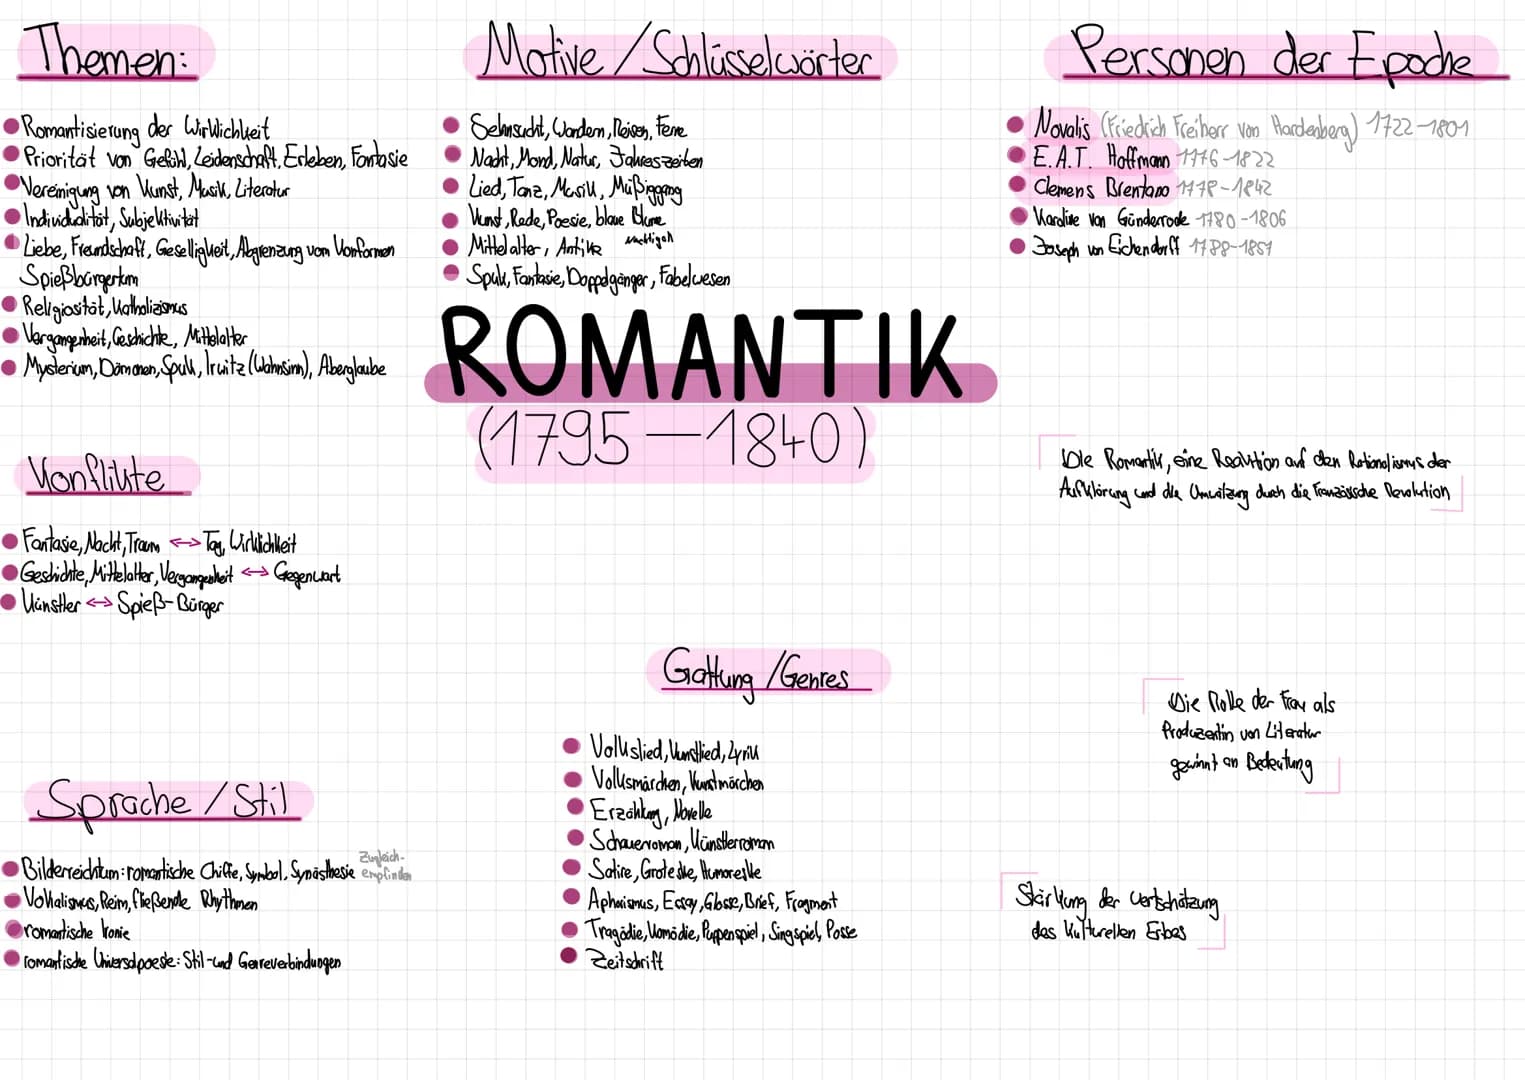 Themen:
Romantisierung der Wirklichkeit
Priorität von Gefühl, Leidenschaft, Erleben, Fantasie
Vereinigung von Kunst, Musik, Literatur
Individualität, Subjektivität
Liebe, Freundschaft, Geselligkeit, Abgrenzung vom Konformen
Spießbürgertum
Religiosität, Katholizismus
Vergangenheit, Geschichte, Mittelalter
Mysterium, Dämonen, Spuk, Irwitz (Wahnsinn), Aberglaube
Motive / Schlüsselwörter
Sehnsucht, Wandern, Reisen, Ferne
Nacht, Mond, Natur, Jahreszeiten
Lied, Tanz, Musik, Müßiggang
Kunst, Rede, Poesie, blaue Blume
Mittelalter, Antike Nachtigall
Spuk, Fantasie, Doppelgänger, Fabelwesen
Personen der Epoche
Novalis (Friedrich Freiherr von Hardenberg) 1722-1801
E.A.T. Hoffmann 1776-1822
Clemens Brentano 1778-1842
Karoline von Günderrode 1780-1806
Joseph von Eichendorff 1788-1857
ROMANTIK
(1795-1840)
Konflikte
Fantasie, Nacht, Traum ↔ Tag, Wirklichkeit
Geschichte, Mittelalter, Vergangenheit ↔ Gegenwart
Künstler ↔ Spieß-Bürger
Die Romantik, eine Reaktion auf den Rationalismus der
Aufklärung und die Umwälzung durch die Französische Revolution
Gattung / Genres
Volkslied, Kunstlied, Lyrik
Volksmärchen, Kunstmärchen
Erzählung, Novelle
Schauerroman, Künstlerroman
Satire, Groteske, Humoreske
Aphorismus, Essay, Glosse, Brief, Fragment
Tragödie, Komödie, Puppenspiel, Singspiel, Posse
Zeitschrift
Die Rolle der Frau als
Produzentin von Literatur
gewinnt an Bedeutung
Sprache / Stil
Bilderreichtum: romantische Chiffre, Symbol, Synästhesie Zugleich-
empfinden
Vokalismus, Reim, fließende Rhythmen
romantische Ironie
romantische Universalpoesie: Stil- und Genreverbindungen
Stärkung der Wertschätzung
des kulturellen Erbes